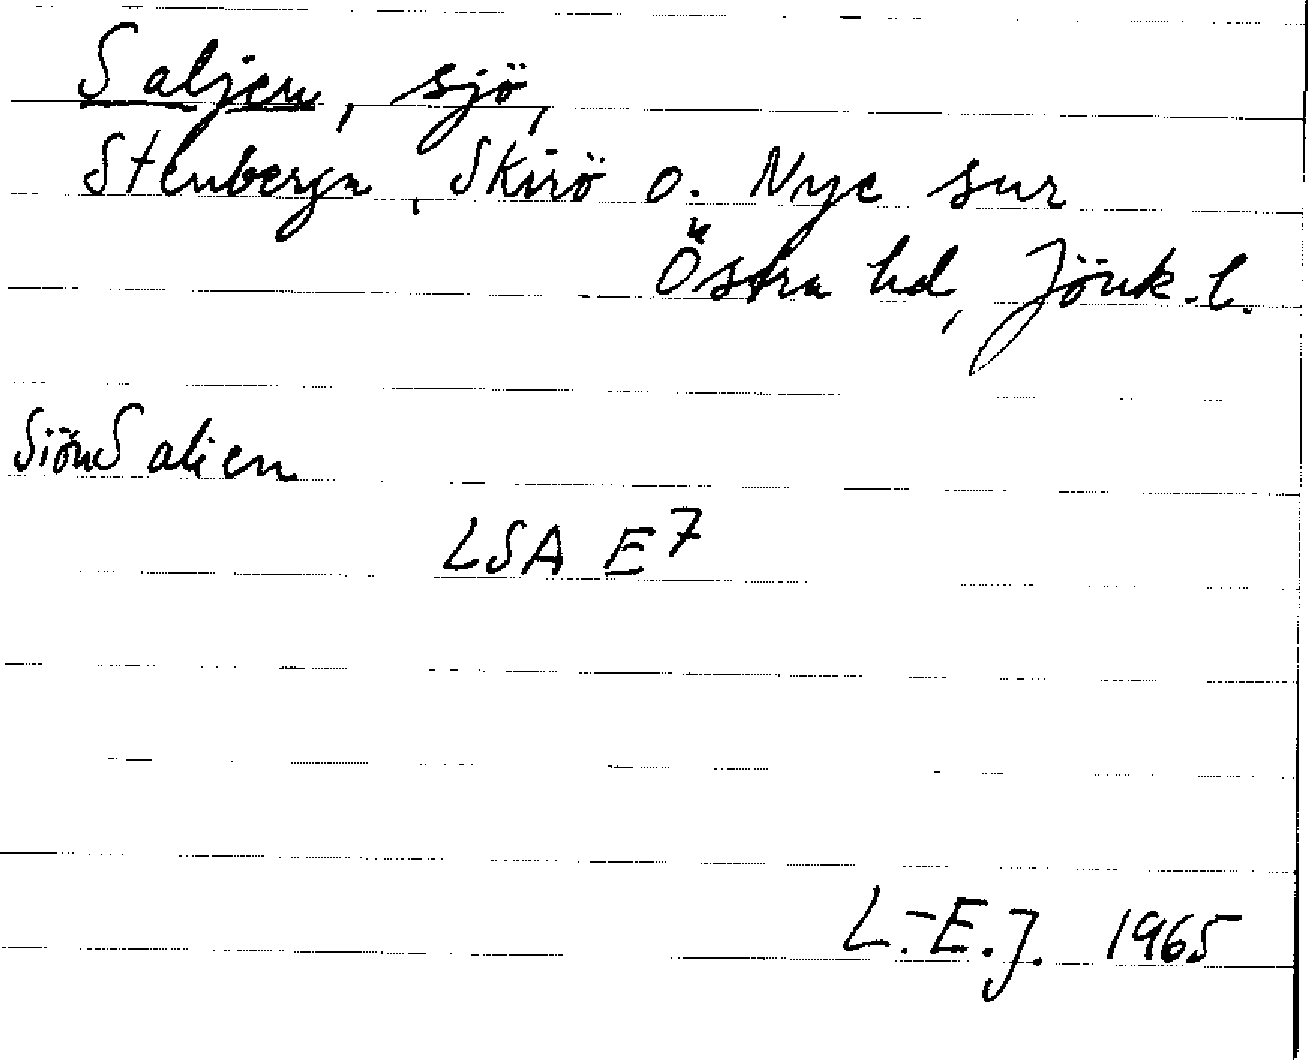 Saljen, sjö,
Stenberga, Skirö o. Nye snr
Östra hd, Jönk. l.
Siön Salien
LSA E7
L.-E.J. 1965